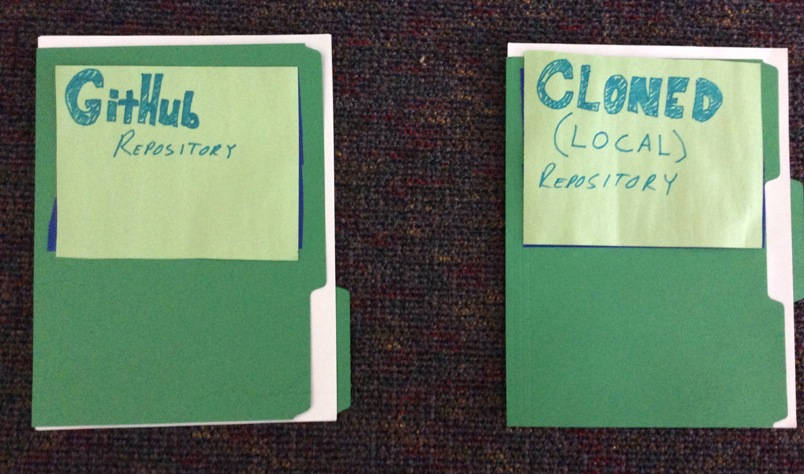 GitHub
REPOSITORY
CLONED
(LOCAL)
REPOSITORY